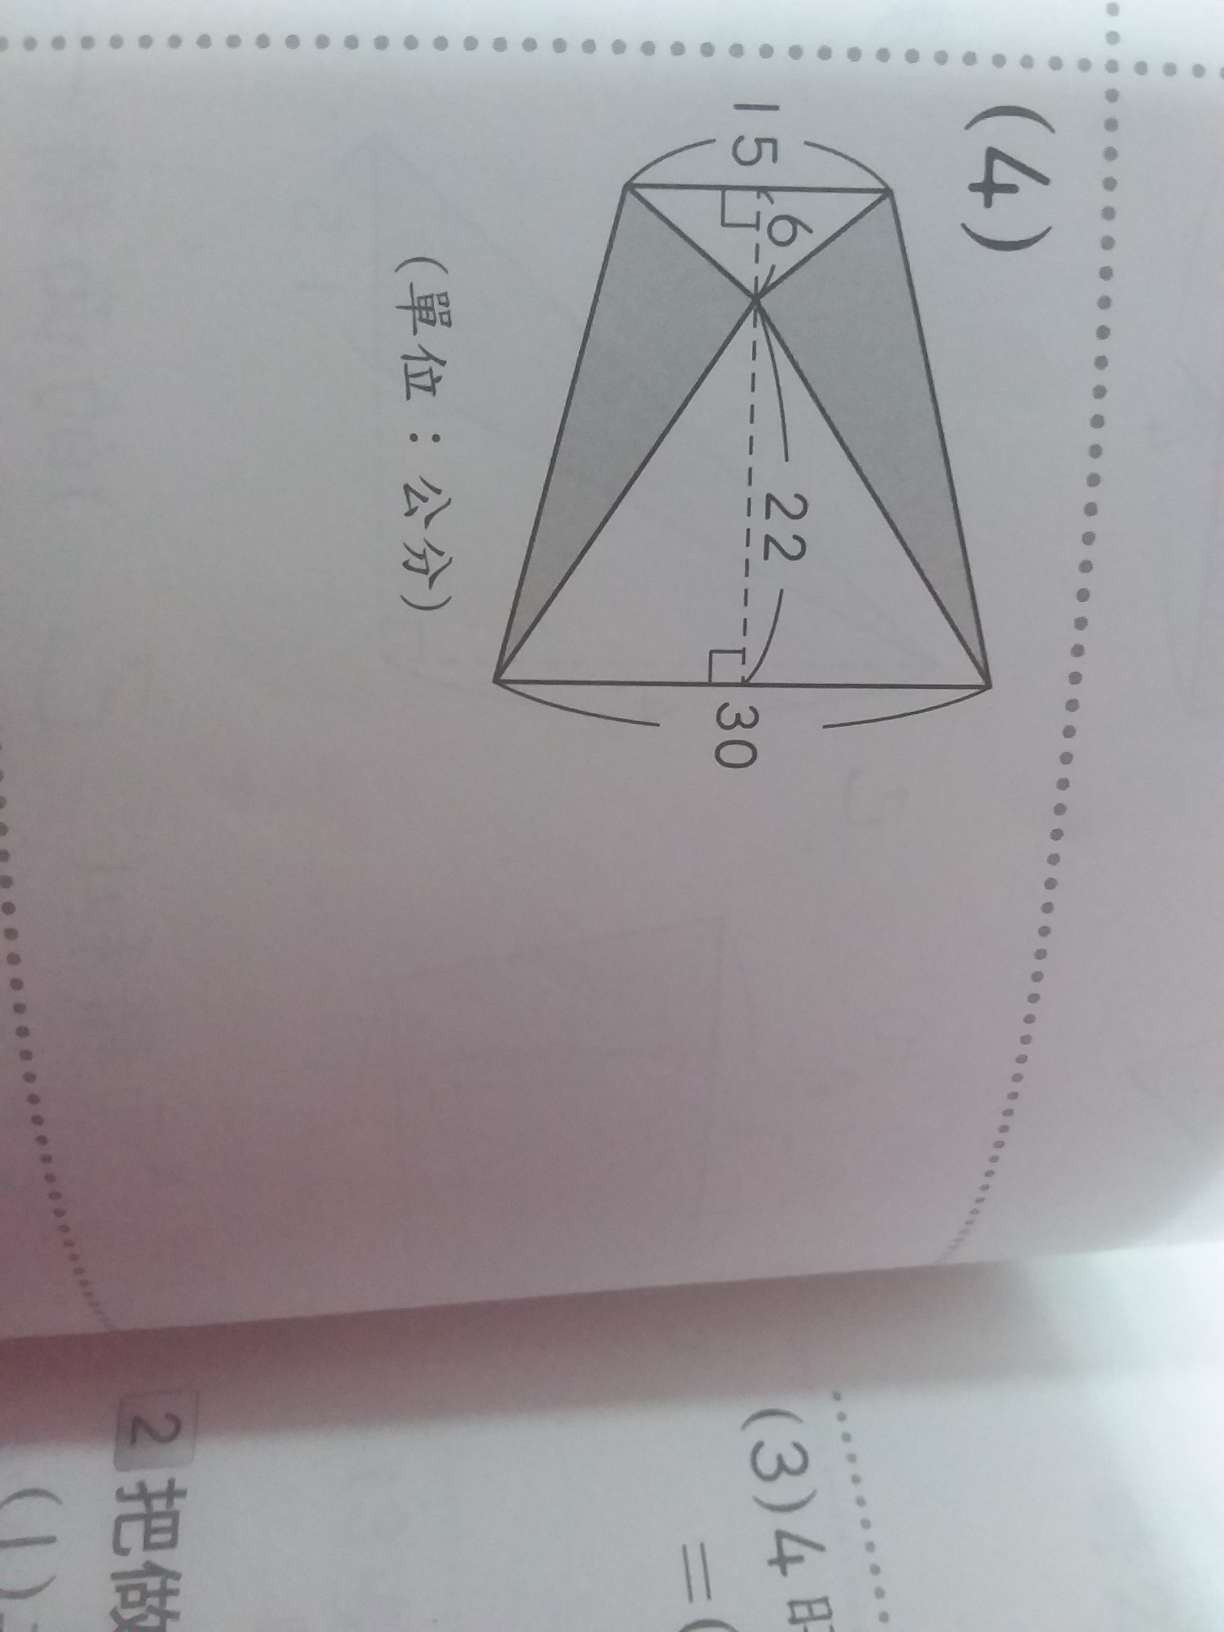 (4)
15
6
22
30
(單位：公分)
(3)4
=(
2 把做
(1)